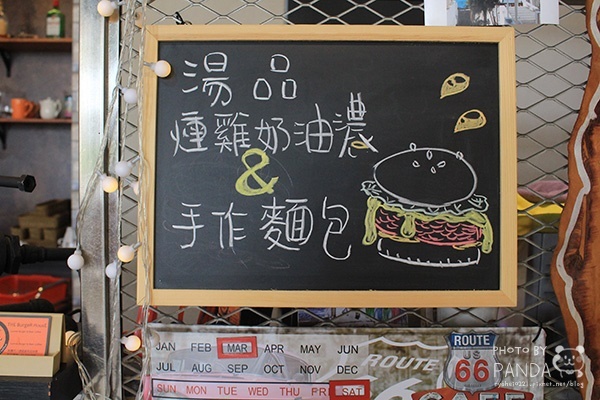 湯品
燻雞奶油濃
&
手作麵包
JAN FEB MAR APR MAY JUN
JUL AUG SEP OCT NOV DEC
SUN MON TUE WED THU FRI SAT
ROUTE
ROUTE
US
66
CAFE
PHOTO BY
PANDA